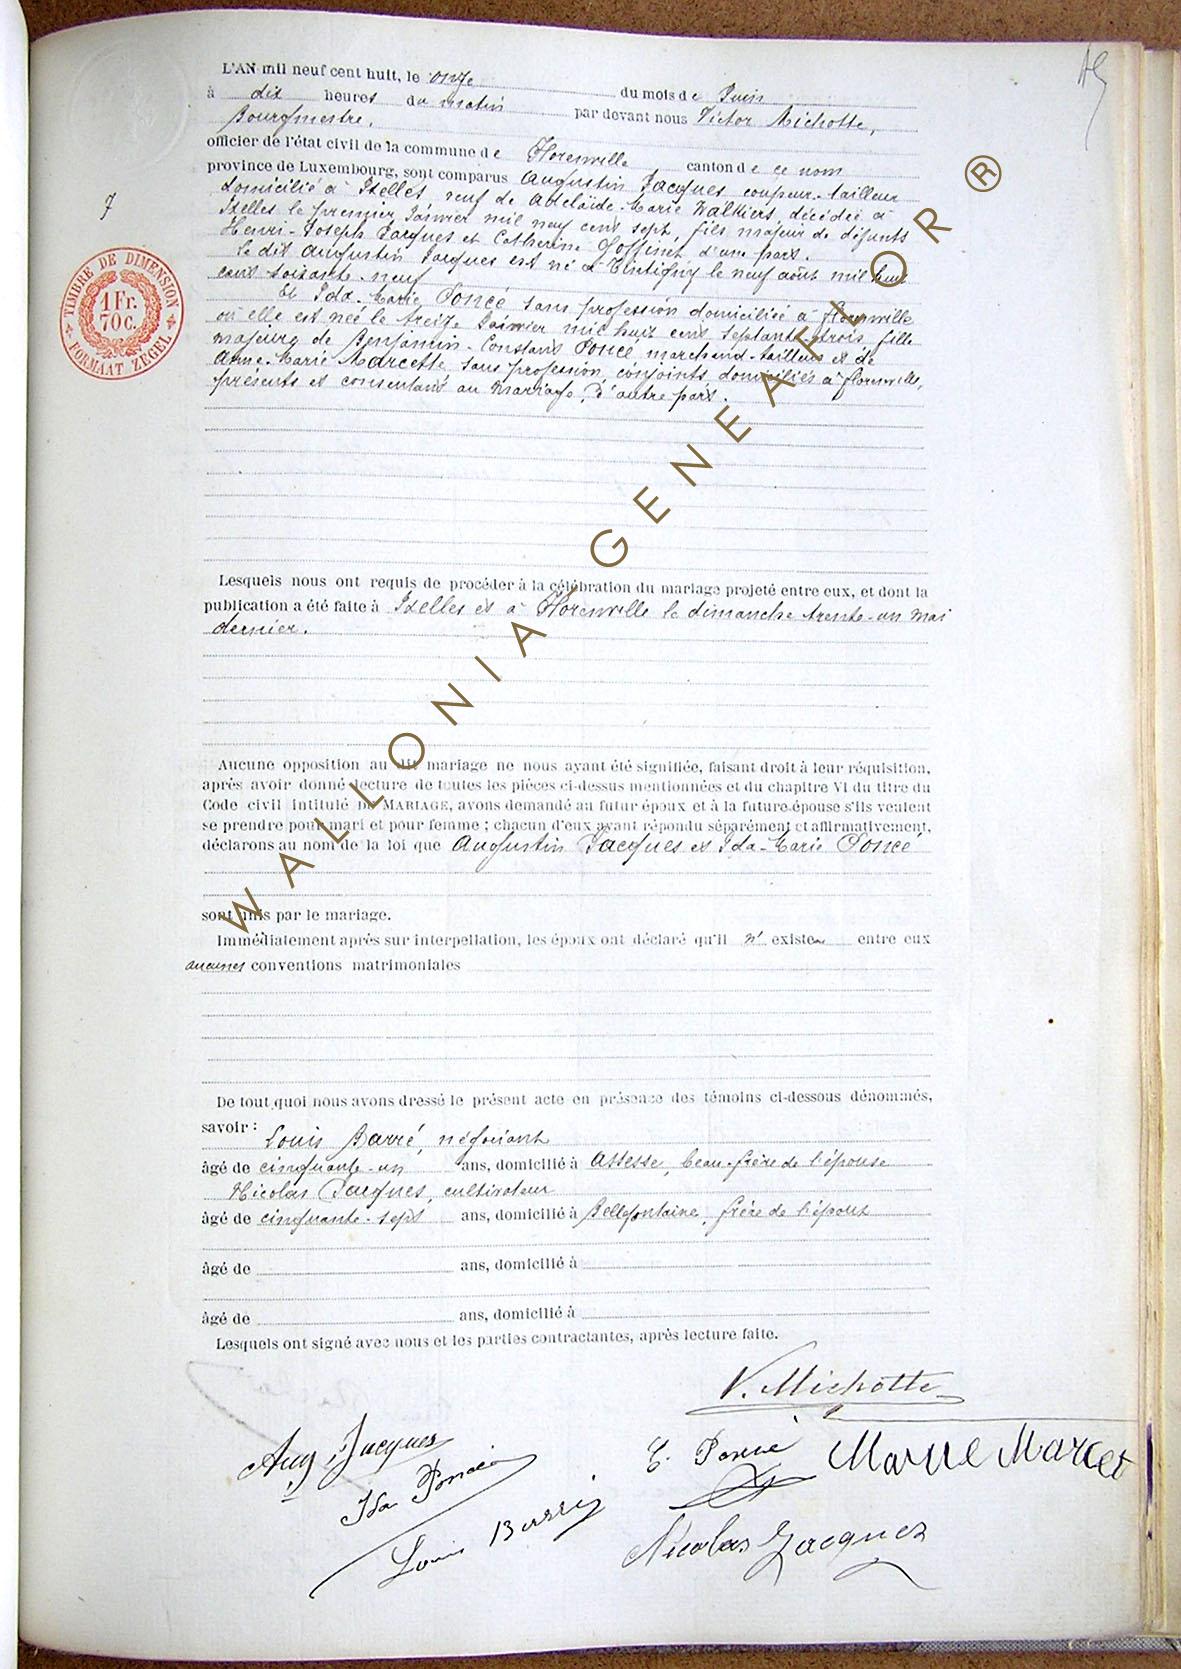 L'AN mil neuf cent huit, le onze du mois de Juin
à dix heures du matin par devant nous Victor Michotte,
Bourgmestre,
officier de l'état civil de la commune de Florenville canton de ce nom
province de Luxembourg, sont comparus Augustin Jacques coupeur-tailleur
domicilié à Ixelles veuf de Adelaïde-Marie Walkiers, décédée à
Ixelles le premier Janvier mil neuf cent sept, fils majeur de défunts
Henri-Joseph Jacques et Catherine Goffinet d'une part.
le dit Augustin Jacques est né à Tintigny le neuf août mil huit
cent soixante-neuf
Et Ida-Marie Poncé sans profession domiciliée à Florenville
où elle est née le treize Janvier mil huit cent septante-trois, fille
majeure de Benjamin-Constant Poncé marchand-tailleur et de
Anne-Marie Marcette, sans profession, conjoints domiciliés à Florenville,
présents et consentant au mariage, d'autre part.
Lesquels nous ont requis de procéder à la célébration du mariage projeté entre eux, et dont la
publication a été faite à Ixelles et à Florenville le dimanche trente-un mai
dernier.
Aucune opposition au dit mariage ne nous ayant été signifiée, faisant droit à leur réquisition,
après avoir donné lecture de toutes les pièces ci-dessus mentionnées et du chapitre VI du titre du
Code civil intitulé DU MARIAGE, avons demandé au futur époux et à la future épouse s'ils veulent
se prendre pour mari et pour femme ; chacun d'eux ayant répondu séparément et affirmativement,
déclarons au nom de la loi que Augustin Jacques et Ida-Marie Poncé
sont unis par le mariage.
Immédiatement après sur interpellation, les époux ont déclaré qu'il n'existe entre eux
aucunes conventions matrimoniales
De tout quoi nous avons dressé le présent acte en présence des témoins ci-dessous dénommés,
savoir : Louis Barré, négociant
âgé de cinquante-un ans, domicilié à Assesse, beau-frère de l'épouse
Nicolas Jacques, cultivateur
âgé de cinquante-sept ans, domicilié à Bellefontaine, frère de l'époux
âgé de ans, domicilié à
âgé de ans, domicilié à
Lesquels ont signé avec nous et les parties contractantes, après lecture faite.
V. Michotte
Aug. Jacques
Ida Poncé
Louis Barré
Poncé
Marie Marcet
Nicolas Jacques
TIMBRE DE DIMENSION
1 Fr.
70 c.
FORMAAT ZEGEL
WALLONIA GENEAFLOR ®